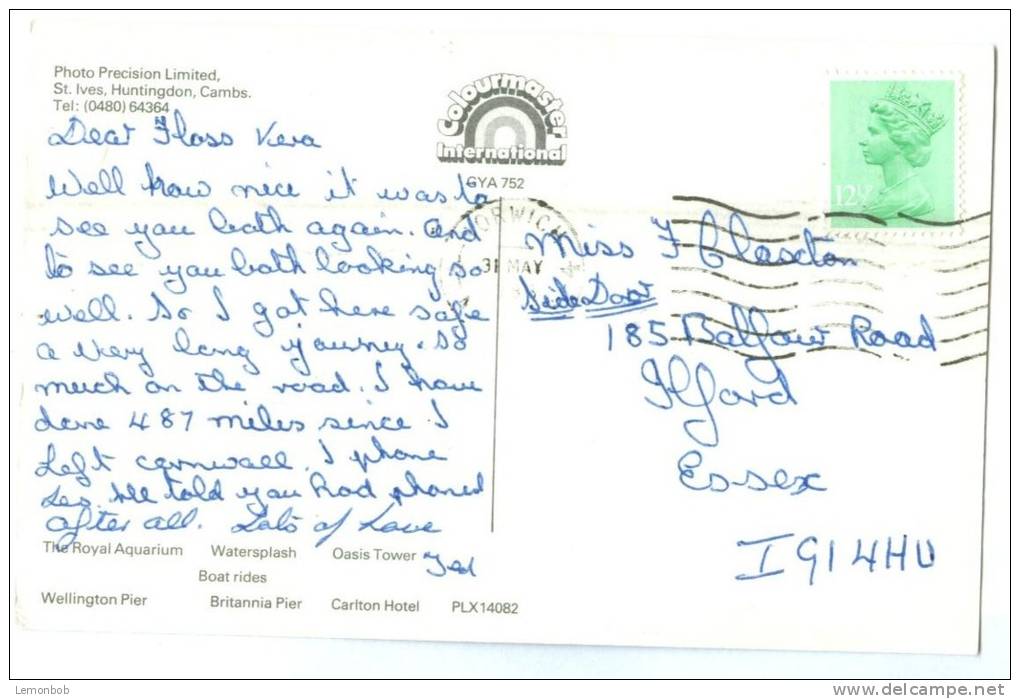 Photo Precision Limited,
St. Ives, Huntingdon, Cambs.
Tel: (0480) 64364
Colourmaster
International
GYA 752
12½
NORWICH
31 MAY
Dear Floss Vera
Well how nice it was to
see you both again. and
to see you both looking so
well. So I got here safe
a very long journey. so
much on the road. I have
done 487 miles since I
Left cornwall. I phone
Les. He told you had phoned
after all. Lots of Love
Ted
Miss F Claxton
Side Door
185 Balfour Road
Ilford
Essex
IG1 4HU
The Royal Aquarium Watersplash Oasis Tower
Boat rides
Wellington Pier Britannia Pier Carlton Hotel PLX14082
Lemonbob
www.delcampe.net